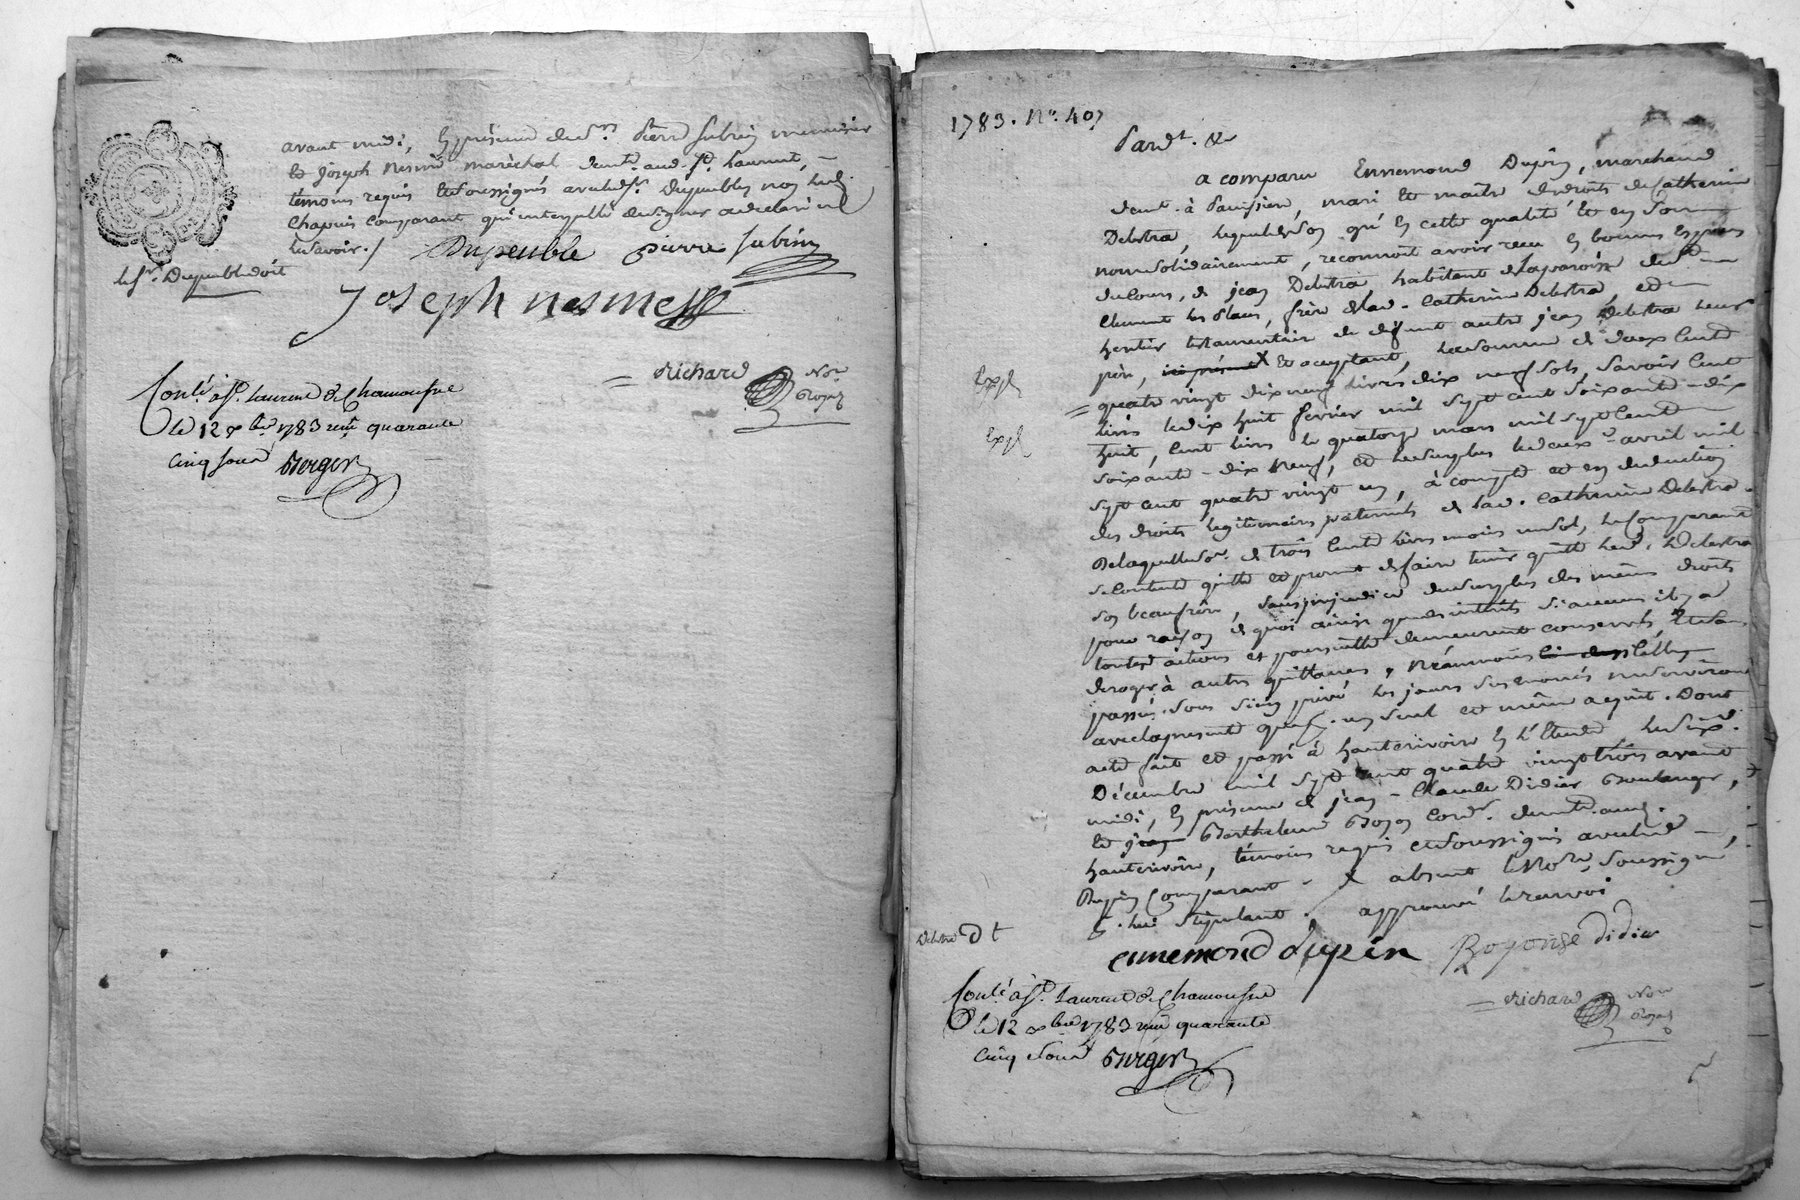 avant midi, En présence de Srs. Pierre Subrin menuisier
Et Joseph Nesme maréchal demt. aud. St. Laurent,
témoins requis Et soussignés avec led. Sr. Dupeuble, non led.
Chapuis Comparant qui interpellé de signer a déclaré ne
le savoir./.
Dupeuble pierre subrin
le Sr. Dupeuble doit
Joseph nesme
Richard Nore
Royal
Conlé. à St. Laurent de Chamousset
le 12 xbre 1783 reçu quarante
Cinq sous Berger
1783. No. 407
Pardt. &a
a comparu Ennemond Dupin, marchand
demt. à Souzy, mari Et maître des droits de Catherine
Delestra, lequel de son gré En cette qualité Et en son
nom solidairement, reconnoit avoir reçu En bonnes Espèces
du Cours, de jean Delestra, habitant de la paroisse de St.
Clement les Places, frère de lad. Catherine Delestra, et
heritier testamentaire de defunt autre jean Delestra leur
père, Et acceptant, la somme de deux Cents
quatre vingt dix neuf Livres dix neuf sols, savoir Cent
Livres le dix huit fevrier mil sept cent soixante-dix
huit, Cent livres le quatorze mars mil sept Cent
soixante-dix neuf, et le surplus le deux avril mil
sept cent quatre vingt un, à compte et en deduction
des droits legitimaires paternels de lad. Catherine Delestra.
De laquelle so.e de trois Cents livres moins un sol, le Comparant
se contente quitte et promet de faire tenir quitte led. Delestra
son beaufrère, sans prejudice du surplus des mêmes droits
pour raison de quoi ainsi que des intérêts si aucuns il y a
toutes actions et poursuittes demeurent conservés, Et sans
deroger à autres quittances, Néanmoins celles
passés sous seing privé les jours susénoncés ne serviront
avec la presente que d'un seul et même acquit. Dont
acte fait et passé à hauterivoire En l'Etude le six
Décembre mil sept cent quatre vingt trois avant
midi, En présence de jean-Claude Didier Boulanger,
Et Barthelemi Boyon Cordr. demt. aud.
hauterivoire, témoins requis et soussignés avec led.
Dupin Comparant X absent le Nore. soussigné
p. lui stipulant. approuvé le renvoi
Expé
Expé
Delestra Dt
ennemond dupin Boyon didier
Richard Nore
Royal
Conlé. à St. Laurent de Chamousset
le 12 xbre 1783 reçu quarante
Cinq sous Berger